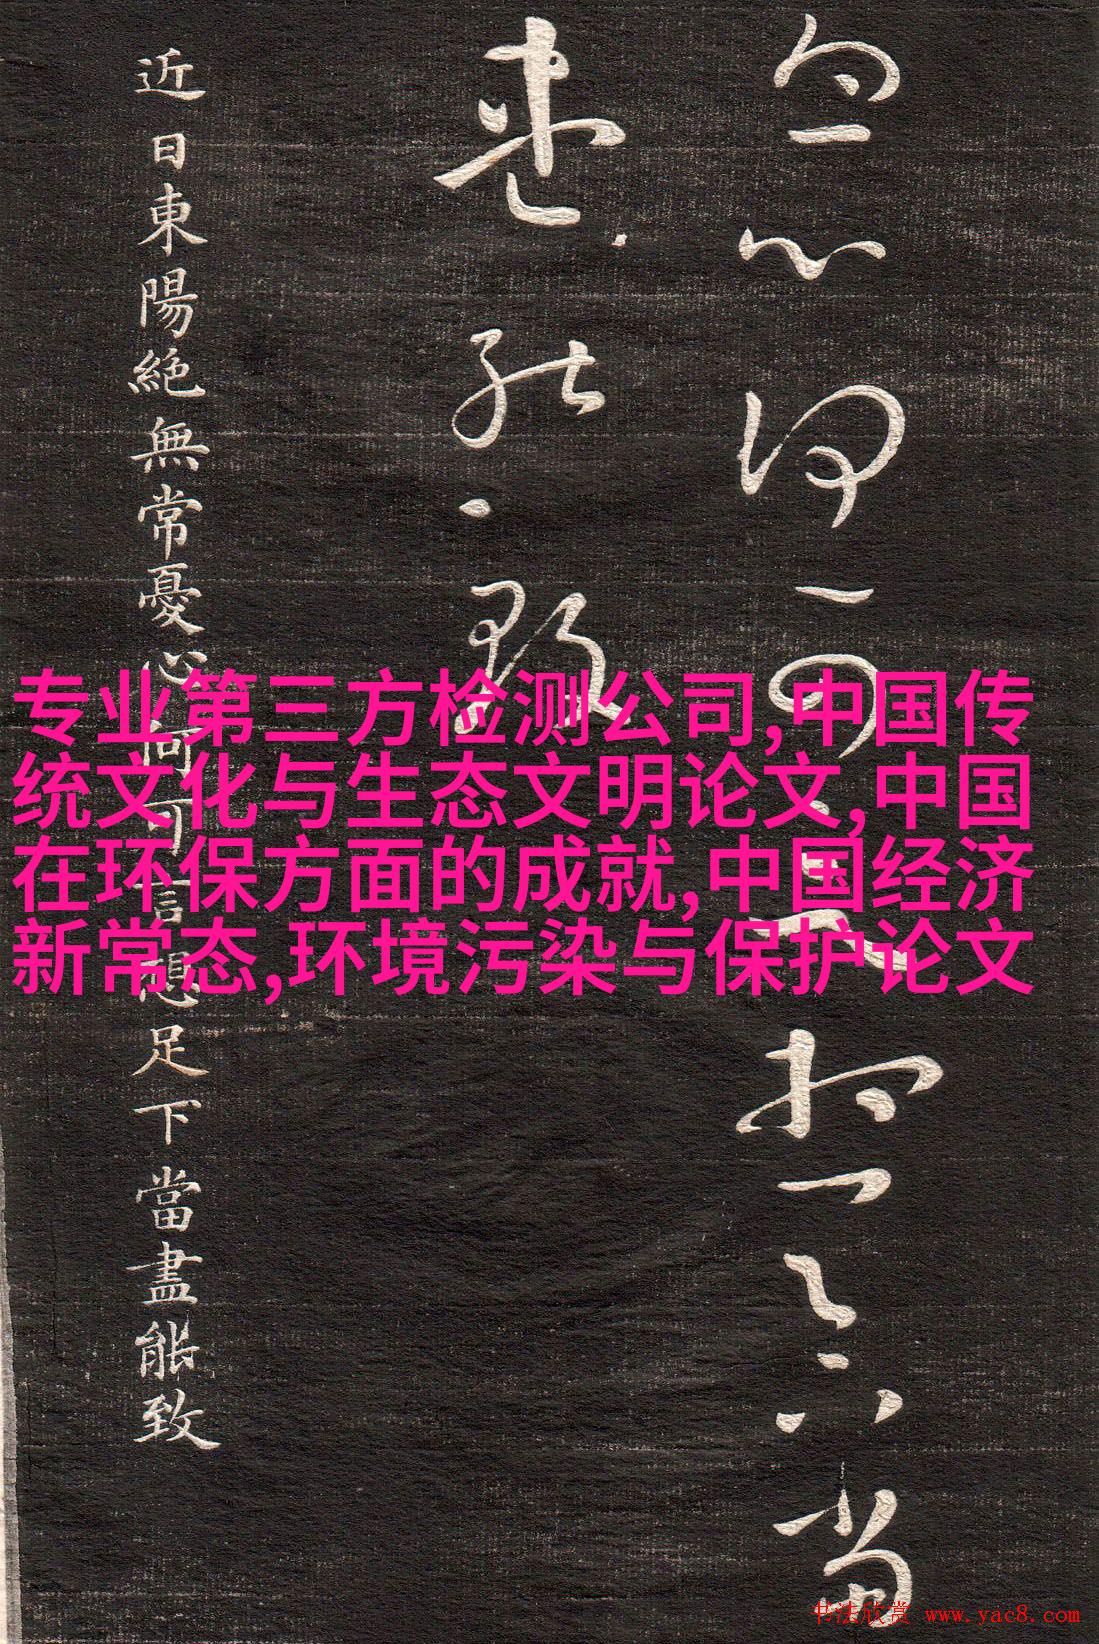 憂心何可言想足下當
盡能致
近日東陽絕無常憂心何可言想足下當盡能致
专业第三方检测公司,中国传
统文化与生态文明论文,中国
在环保方面的成就,中国经济
新常态,环境污染与保护论文
书法欣赏 www.yac8.com